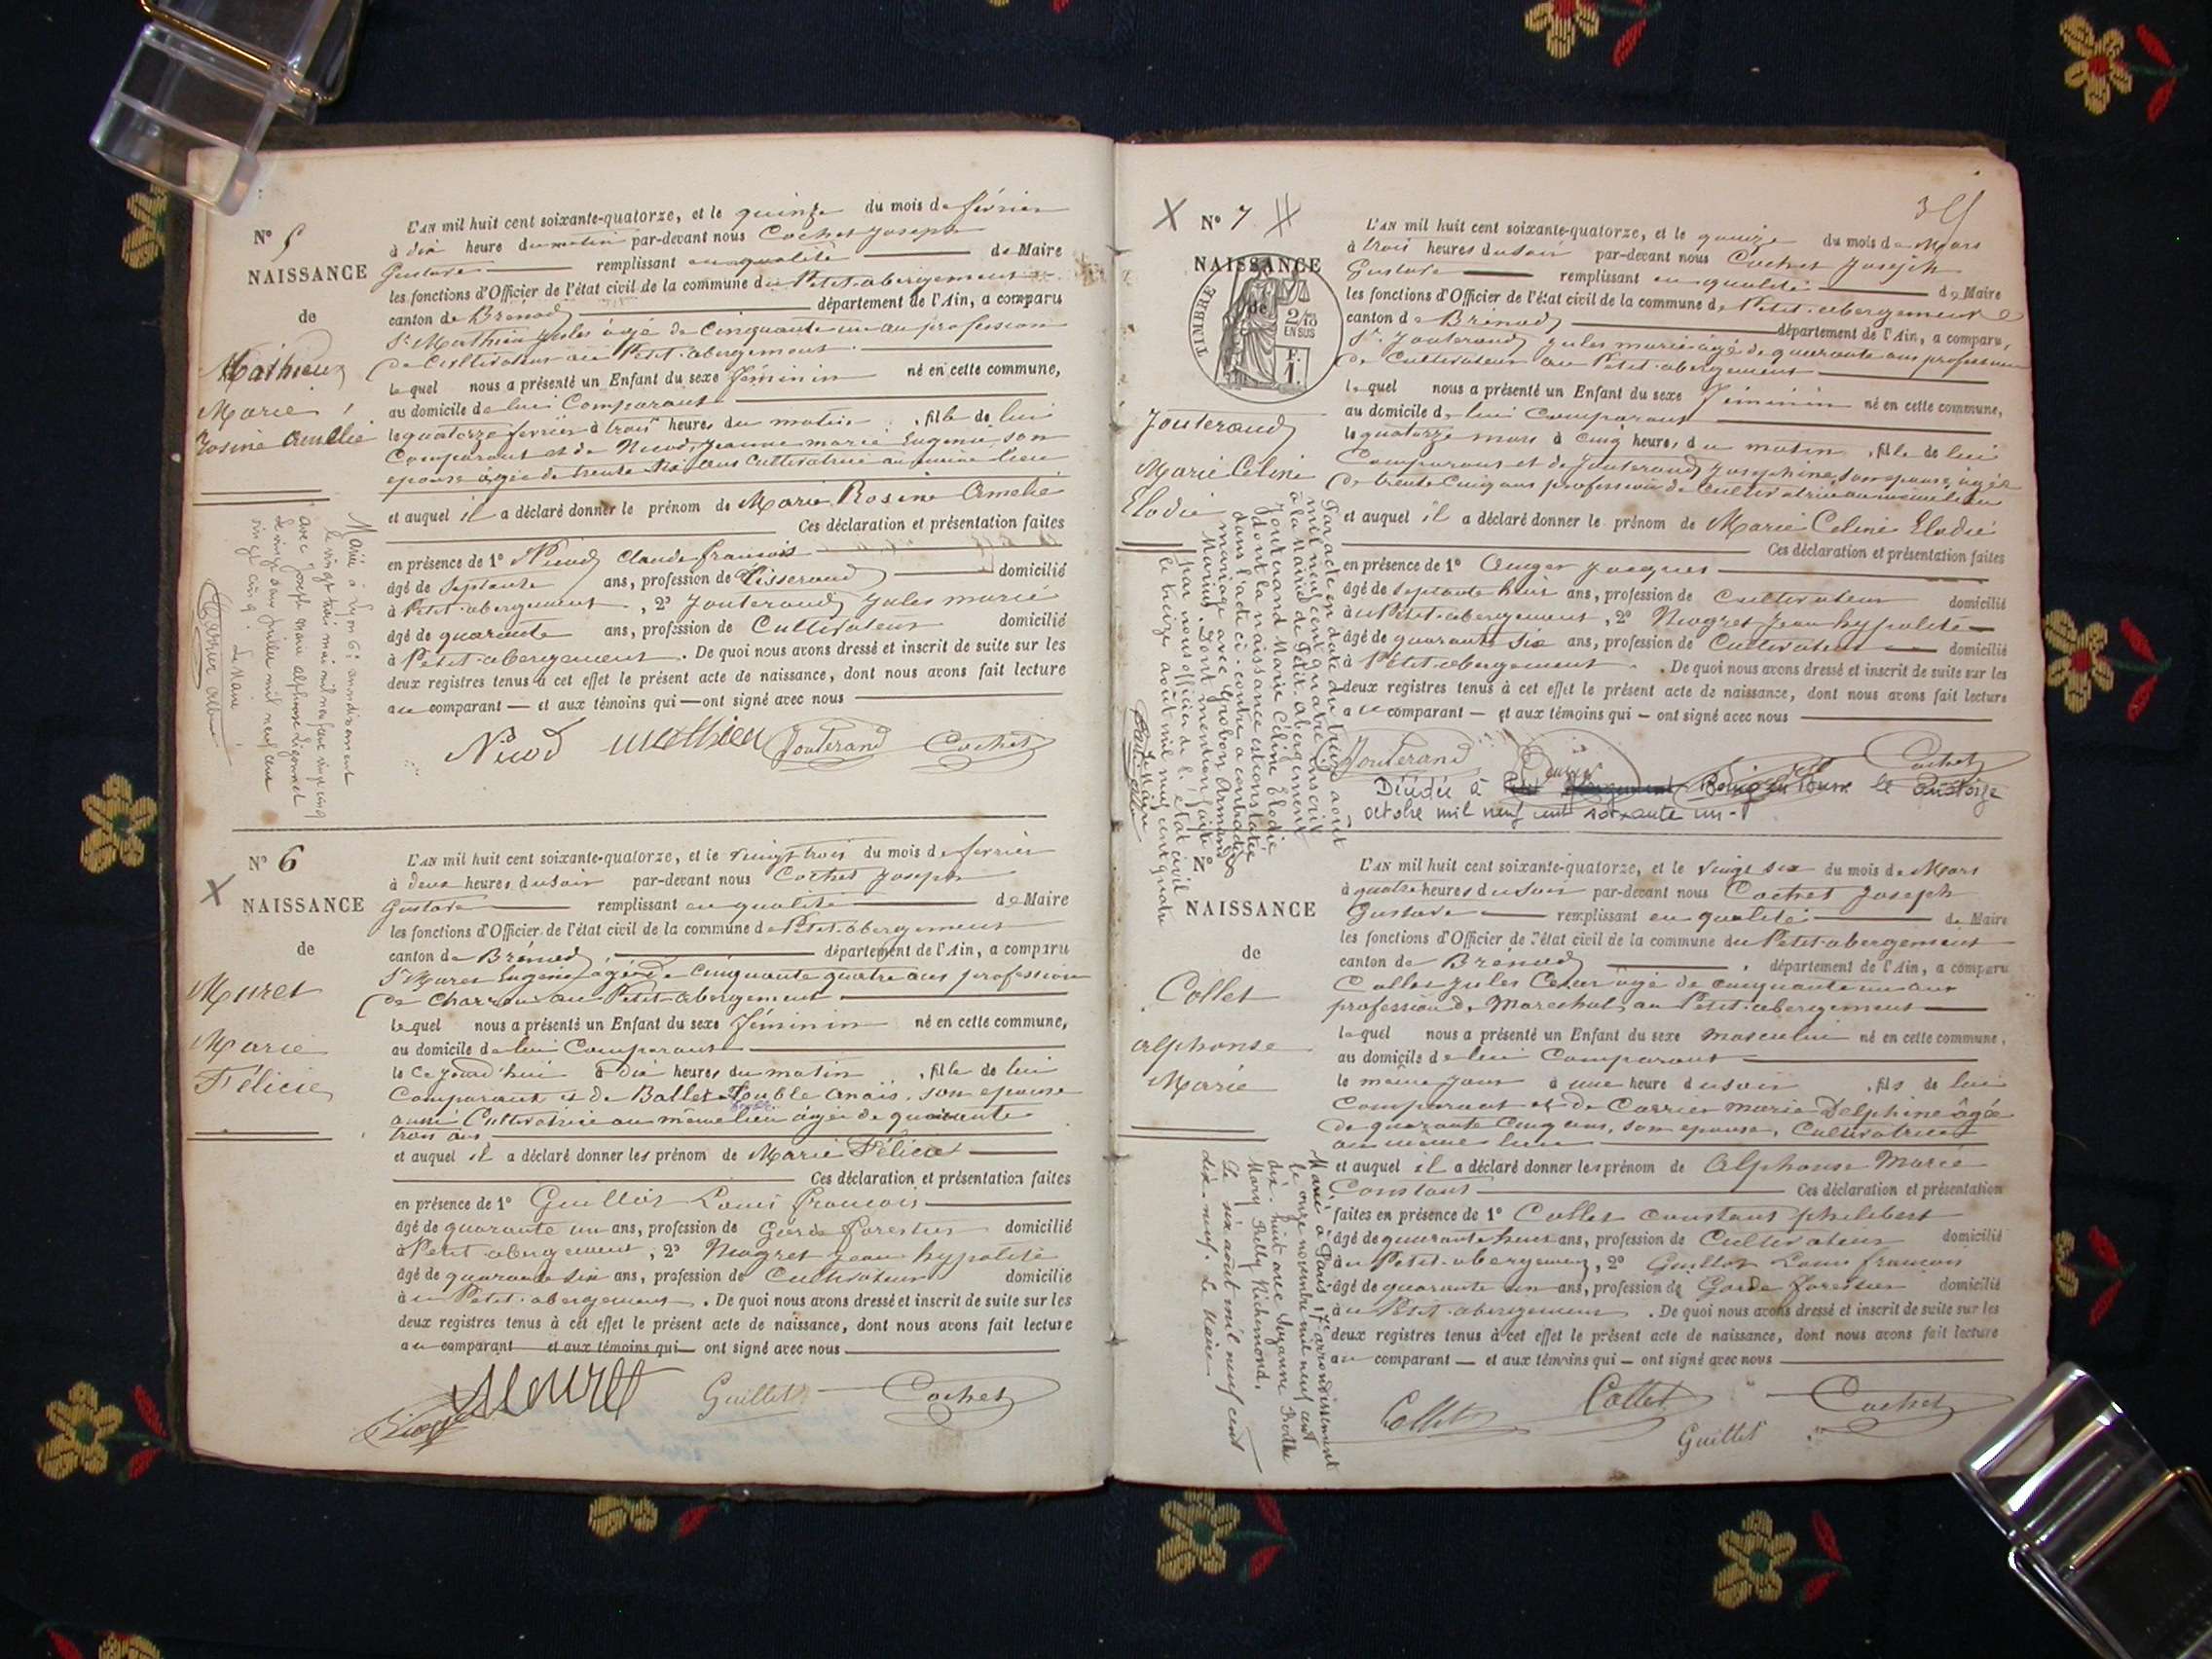 N° 5
NAISSANCE
de
Mathieu
Marie
Rosine Amelie
L'AN mil huit cent soixante-quatorze, et le quinze du mois de février
à dix heure du matin par-devant nous Cochet Joseph
Gustave remplissant en qualité de Maire
les fonctions d'Officier de l'état civil de la commune du Petit-abergement
canton de Brenod département de l'Ain, a comparu
Sr Mathieu Jules âgé de Cinquante un an profession
de Cultivateur au Petit-abergement
lequel nous a présenté un Enfant du sexe féminin né en cette commune,
au domicile de lui Comparant
le quatorze fevrier à trois heures du matin, fille de lui
Comparant et de Nicod Jeanne marie Eugenie, son
epouse âgée de trente ans Cultivatrice au même lieu
et auquel il a déclaré donner le prénom de Marie Rosine Amelie
Ces déclaration et présentation faites
en présence de 1° Nicod Claude francois
âgé de septante ans, profession de Tisserand domicilié
à Petit-abergement, 2° Jouterand Jules marie
âgé de quarante ans, profession de Cultivateur domicilié
à Petit-abergement. De quoi nous avons dressé et inscrit de suite sur les
deux registres tenus à cet effet le présent acte de naissance, dont nous avons fait lecture
au comparant — et aux témoins qui — ont signé avec nous
Nicod Mathieu Jouterand Cochet
Mariée à Lyon 6e arrondissement
le vingt trois mai mil neuf cent vingt cinq
avec Joseph Marie alphonse Ligonnet
Le vingt deux juillet mil neuf cent
vingt cinq. Le Maire
N° 6
NAISSANCE
de
Muret
Marie
Félicie
L'AN mil huit cent soixante-quatorze, et le vingt trois du mois de fevrier
à deux heures du soir par-devant nous Cochet Joseph
Gustave remplissant en qualité de Maire
les fonctions d'Officier de l'état civil de la commune de Petit-abergement
canton de Brénod, département de l'Ain, a comparu
Sr Muret Eugene âgé de Cinquante quatre ans profession
de Charron au Petit-abergement
lequel nous a présenté un Enfant du sexe féminin né en cette commune,
au domicile de lui Comparant
le Ce jourd'hui à dix heures du matin, fille de lui
Comparant et de Ballet Anaïs, son epouse
aussi Cultivatrice au même lieu âgée de quarante
trois ans
et auquel il a déclaré donner les prénom de Marie Félicie
Ces déclaration et présentation faites
en présence de 1° Guillot Louis francois
âgé de quarante un ans, profession de Garde forestier domicilié
à Petit abergement, 2° Mogret Jean hypolite
âgé de quarante six ans, profession de Cultivateur domicilié
à u Petit-abergement. De quoi nous avons dressé et inscrit de suite sur les
deux registres tenus à cet effet le présent acte de naissance, dont nous avons fait lecture
au comparant et aux témoins qui — ont signé avec nous
Muret Guillot Cochet
35
N° 7
NAISSANCE
de
TIMBRE
2/10
EN SUS
F.
1.
Jouterand
Marie Celine
Elodie
L'AN mil huit cent soixante-quatorze, et le quinze du mois de Mars
à trois heures du soir par-devant nous Cochet Joseph
Gustave remplissant en qualité de Maire
les fonctions d'Officier de l'état civil de la commune de Petit-abergement
canton de Brénod département de l'Ain, a comparu,
Sr Jouterand Jules marie âgé de quarante ans profession
de Cultivateur au Petit-abergement
lequel nous a présenté un Enfant du sexe féminin né en cette commune,
au domicile de lui Comparant
le quatorze mars à Cinq heures du matin, fille de lui
Comparant et de Jouterand Josephine, son epouse, âgée
de trente Cinq ans profession de Cultivatrice au même lieu
et auquel il a déclaré donner le prénom de Marie Celine Elodie
Ces déclaration et présentation faites
en présence de 1° Auger Jacques
âgé de septante huit ans, profession de Cultivateur domicilié
à u Petit-abergement, 2° Mogret Jean hypolite
âgé de quarante six ans, profession de Cultivateur domicilié
à Petit-abergement. De quoi nous avons dressé et inscrit de suite sur les
deux registres tenus à cet effet le présent acte de naissance, dont nous avons fait lecture
au comparant — et aux témoins qui — ont signé avec nous
Jouterand Cochet
Décédée à Bourg en Bresse le quatorze
octobre mil neuf cent soixante un
Par acte en date du treize août
mil neuf cent quatre inscrit
à la Mairie de Petit-abergement
Jouterand Marie Céline Elodie
dont la naissance est constatée
dans l'acte ci-contre a contracté
mariage avec Grobon Armand
Marius. Dont mention faite
par nous officier de l'état civil
le treize août mil neuf cent quatre
Le Maire
N°
NAISSANCE
de
Collet
Alphonse
Marie
L'AN mil huit cent soixante-quatorze, et le vingt six du mois de Mars
à quatre heures du soir par-devant nous Cochet Joseph
Gustave remplissant en qualité de Maire
les fonctions d'Officier de l'état civil de la commune du Petit-abergement
canton de Brénod, département de l'Ain, a comparu
Collet Jules César âgé de cinquante un ans
profession de Marechal, au Petit-abergement
lequel nous a présenté un Enfant du sexe masculin né en cette commune,
au domicile de lui Comparant
le même jour à une heure du soir, fils de lui
Comparant et de Carrier Marie Delphine âgée
de quarante Cinq ans, son epouse, Cultivatrice
au même lieu
et auquel il a déclaré donner les prénom de Alphonse Marie
Constant Ces déclaration et présentation
faites en présence de 1° Collet Constant philibert
âgé de quarante huit ans, profession de Cultivateur domicilié
à u Petit-abergement, 2° Guillot Louis francois
âgé de quarante un ans, profession de Garde forestier domicilié
à u Petit-abergement. De quoi nous avons dressé et inscrit de suite sur les
deux registres tenus à cet effet le présent acte de naissance, dont nous avons fait lecture
au comparant — et aux témoins qui — ont signé avec nous
Collet Collet Cochet
Guillot
Marié à Paris 17e arrondissement
le onze novembre mil neuf cent
dix-huit avec Suzanne Berthe
Mary Betty Richemond.
Le six août mil neuf cent
dix-neuf. Le Maire